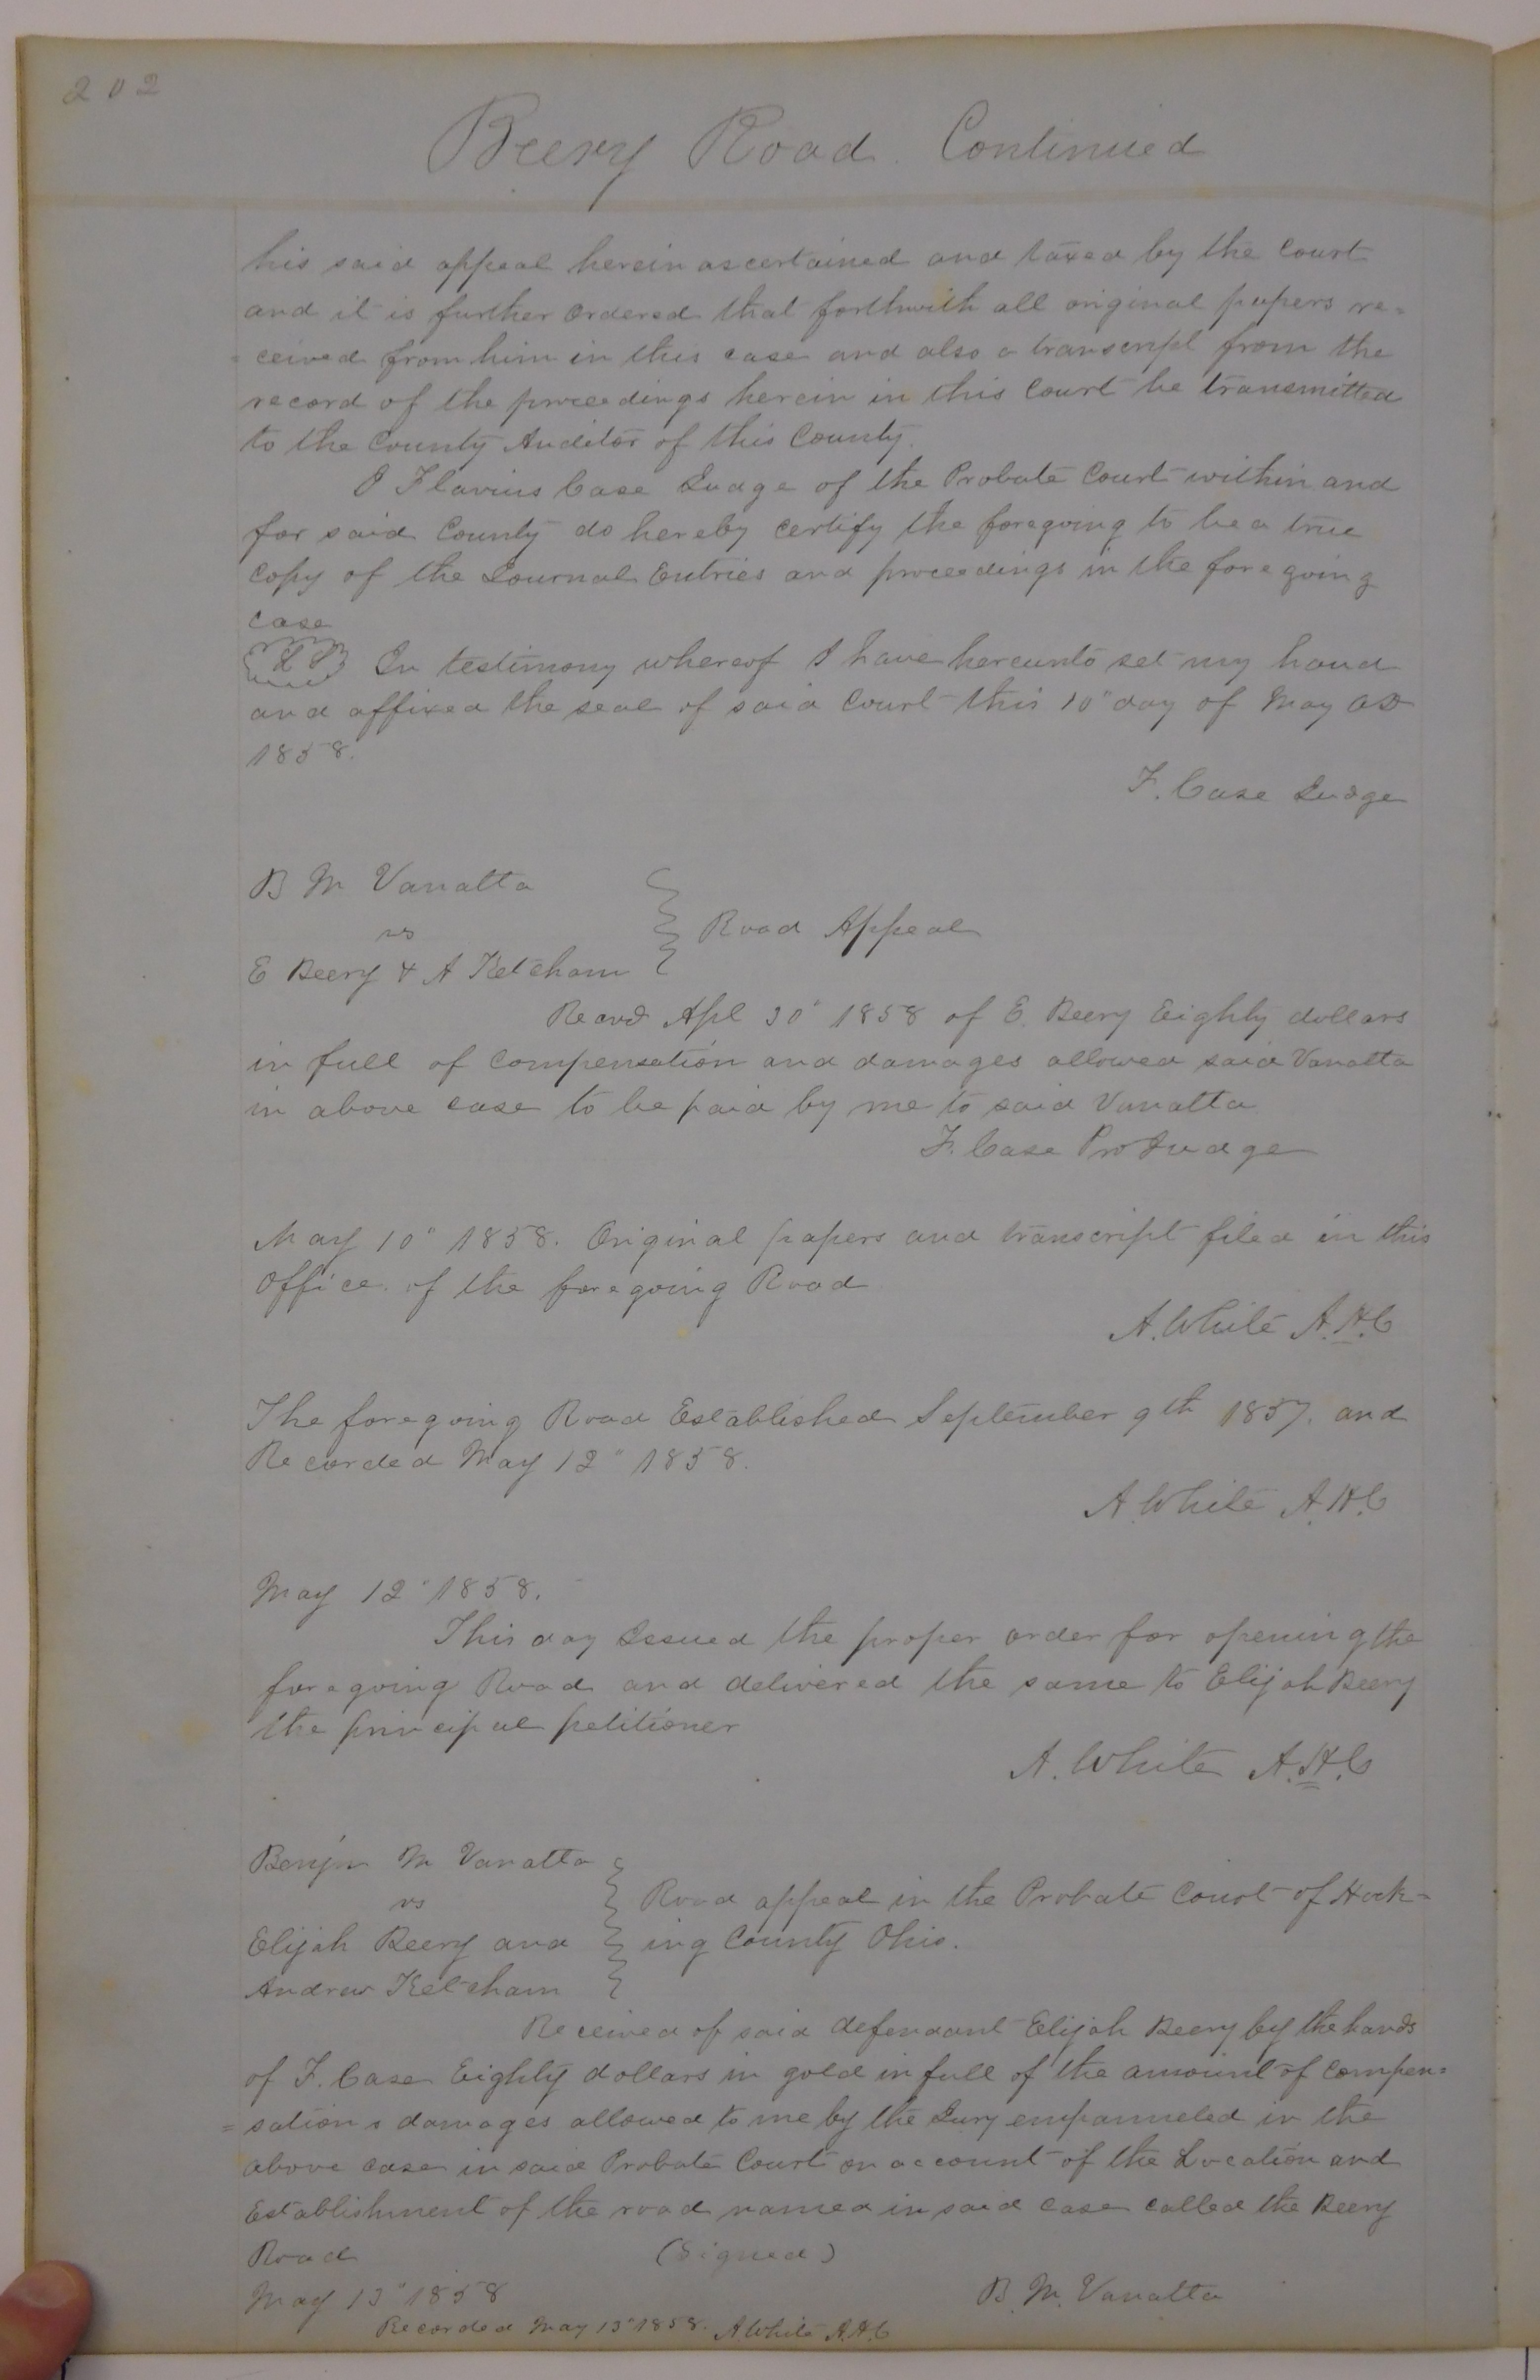 202
Beery Road. Continued
his said appeal herein ascertained and taxed by the Court
and it is further ordered that forthwith all original papers re=
=ceived from him in this case and also a transcript from the
record of the proceedings herein in this Court be transmitted
to the County Auditor of this County.
I Flavius Case Judge of the Probate Court within and
for said County do hereby certify the foregoing to be a true
copy of the Journal Entries and proceedings in the foregoing
case
L S In testimony whereof I have hereunto set my hand
and affixed the seal of said Court this 10" day of May AD
1858.
F. Case Judge
B M Vanatta
vs
Road Appeal
E Beery & A Ketcham
Recvd Apl 30" 1858 of E. Beery Eighty dollars
in full of compensation and damages allowed said Vanatta
in above case to be paid by me to said Vanatta
F. Case Pro Judge
May 10" 1858. Original papers and transcript filed in this
Office. of the foregoing Road
A. White A.H.C
The foregoing Road Established September 9th 1857. and
Recorded May 12" 1858.
A. White A.H.C
May 12" 1858.
This day Issued the proper order for opening the
foregoing Road and delivered the same to Elijah Beery
the principal petitioner
A. White A.H.C
Benjn M Vanatta
vs
Road appeal in the Probate Court of Hock-
Elijah Beery and
ing County Ohio.
Andrew Ketcham
Received of said defendant Elijah Beery by the hands
of F. Case Eighty dollars in gold in full of the amount of compen=
=sation & damages allowed to me by the Jury empanneled in the
above case in said Probate Court on account of the Location and
Establishment of the road named in said case called the Beery
Road (Signed)
May 13" 1858 B. M. Vanatta
Recorded May 13" 1858. A White A.H.C